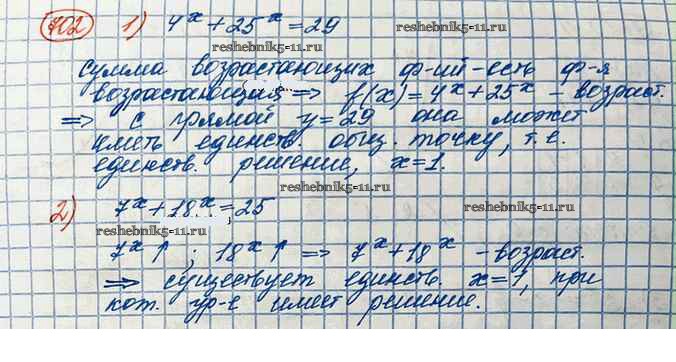 702 1) 4ˣ + 25ˣ = 29
reshebnik5-11.ru reshebnik5-11.ru
Сумма возрастающих ф-ий - есть ф-я
возрастающая ⇒ f(x) = 4ˣ + 25ˣ - возраст.
⇒ с прямой y = 29 она может
иметь единств. общ. точку, т.е.
единств. решение, x = 1.
reshebnik5-11.ru
2) 7ˣ + 18ˣ = 25
reshebnik5-11.ru reshebnik5-11.ru
7ˣ↑ ; 18ˣ↑ ⇒ 7ˣ + 18ˣ - возраст.
⇒ существует единств. x = 1, при
кот. ур-е имеет решение.
reshebnik5-11.ru